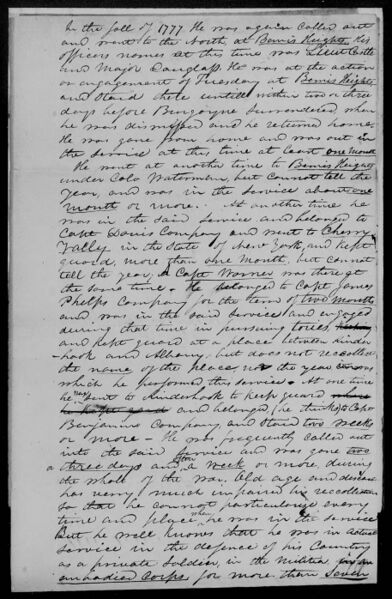 In the fall of 1777 He was again called out
and went to the North at Bemis Heights, his
officers names at this time was Lieut
and Major Douglass. He was at the action
or engagement of Tuesday at Bemis Heights
and Staid there untill within two or three
days before Burgoyne Surrendered when
he was dismissed and he returned home.
He was gone from home and was out in
the Service at this time at least one Month
He went at another time to Bemis Heights
under Colo Waterman, but cannot tell the
Year, and was in the Service about one
month or more. At another time he
was in the said Service and belonged to
Capt Davis Company and went to Cherry
Valley in the State of New York, and kept
guard, more than one Month, but cannot
tell the year, a Capt Warner was there at
the same time. He belonged to Capt James
Phelps Company for the term of two Months
and was in the said Service and engaged
during that time in pursuing tories,
and kept guard at a place between Kinder-
hook and Albany, but does not recollect
the name of the place nor the year
which he performed this service. At one time
he was Sent to Kinderhook to keep guard where
he kept guard and belonged (he thinks) to Capt
Benjamins Company, and Staid two weeks
or more - He was frequently called out
into the said Service and was gone two
a three days and often a Week or more, during
the whole of the war. Old age and disease
has very much impaired his recollection
so that he cannot particularise every
time and place when he was in the Service
But he well knows that he was in actual
Service in the defence of his Country
as a private Soldier, in the Militia
embodied Corps for more than Seven